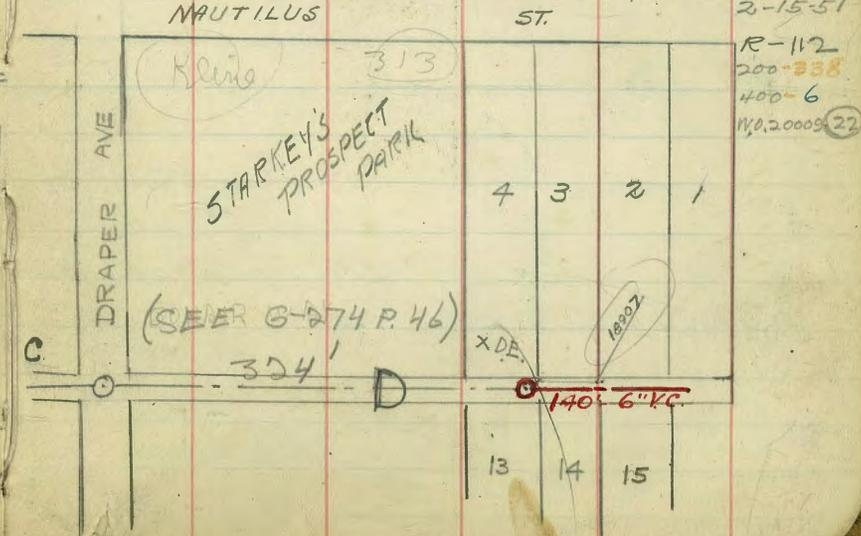 NAUTILUS ST.
2-15-51
R-112
200-338
400-6
W.O. 20009-22
Kline
313
STARKEY'S
PROSPECT
PARK
DRAPER AVE
4 3 2 1
18907
(SEE G-274 P. 46)
324'
X D.E.
C
D
140'- 6" V.C.
13 14 15